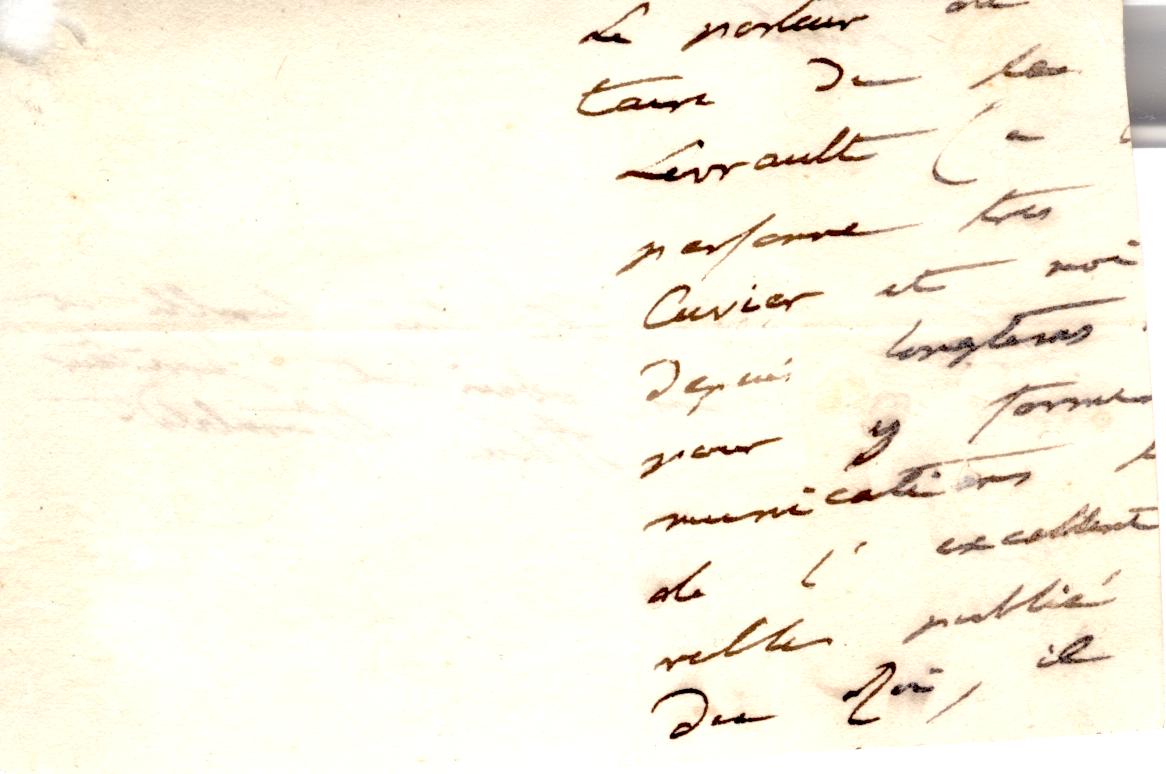 Le porteur de
taire du
Levrault (a
personne très
Cuvier et moi
depuis longtems
pour y former
munications p
de l' excellent
velles publié
du Roi, il